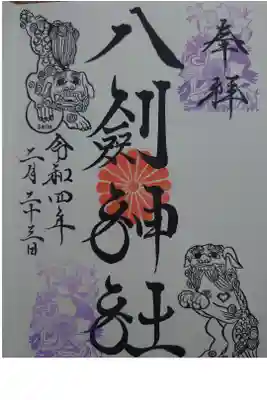 奉拝
八剱神社
令和四年
二月二十三日